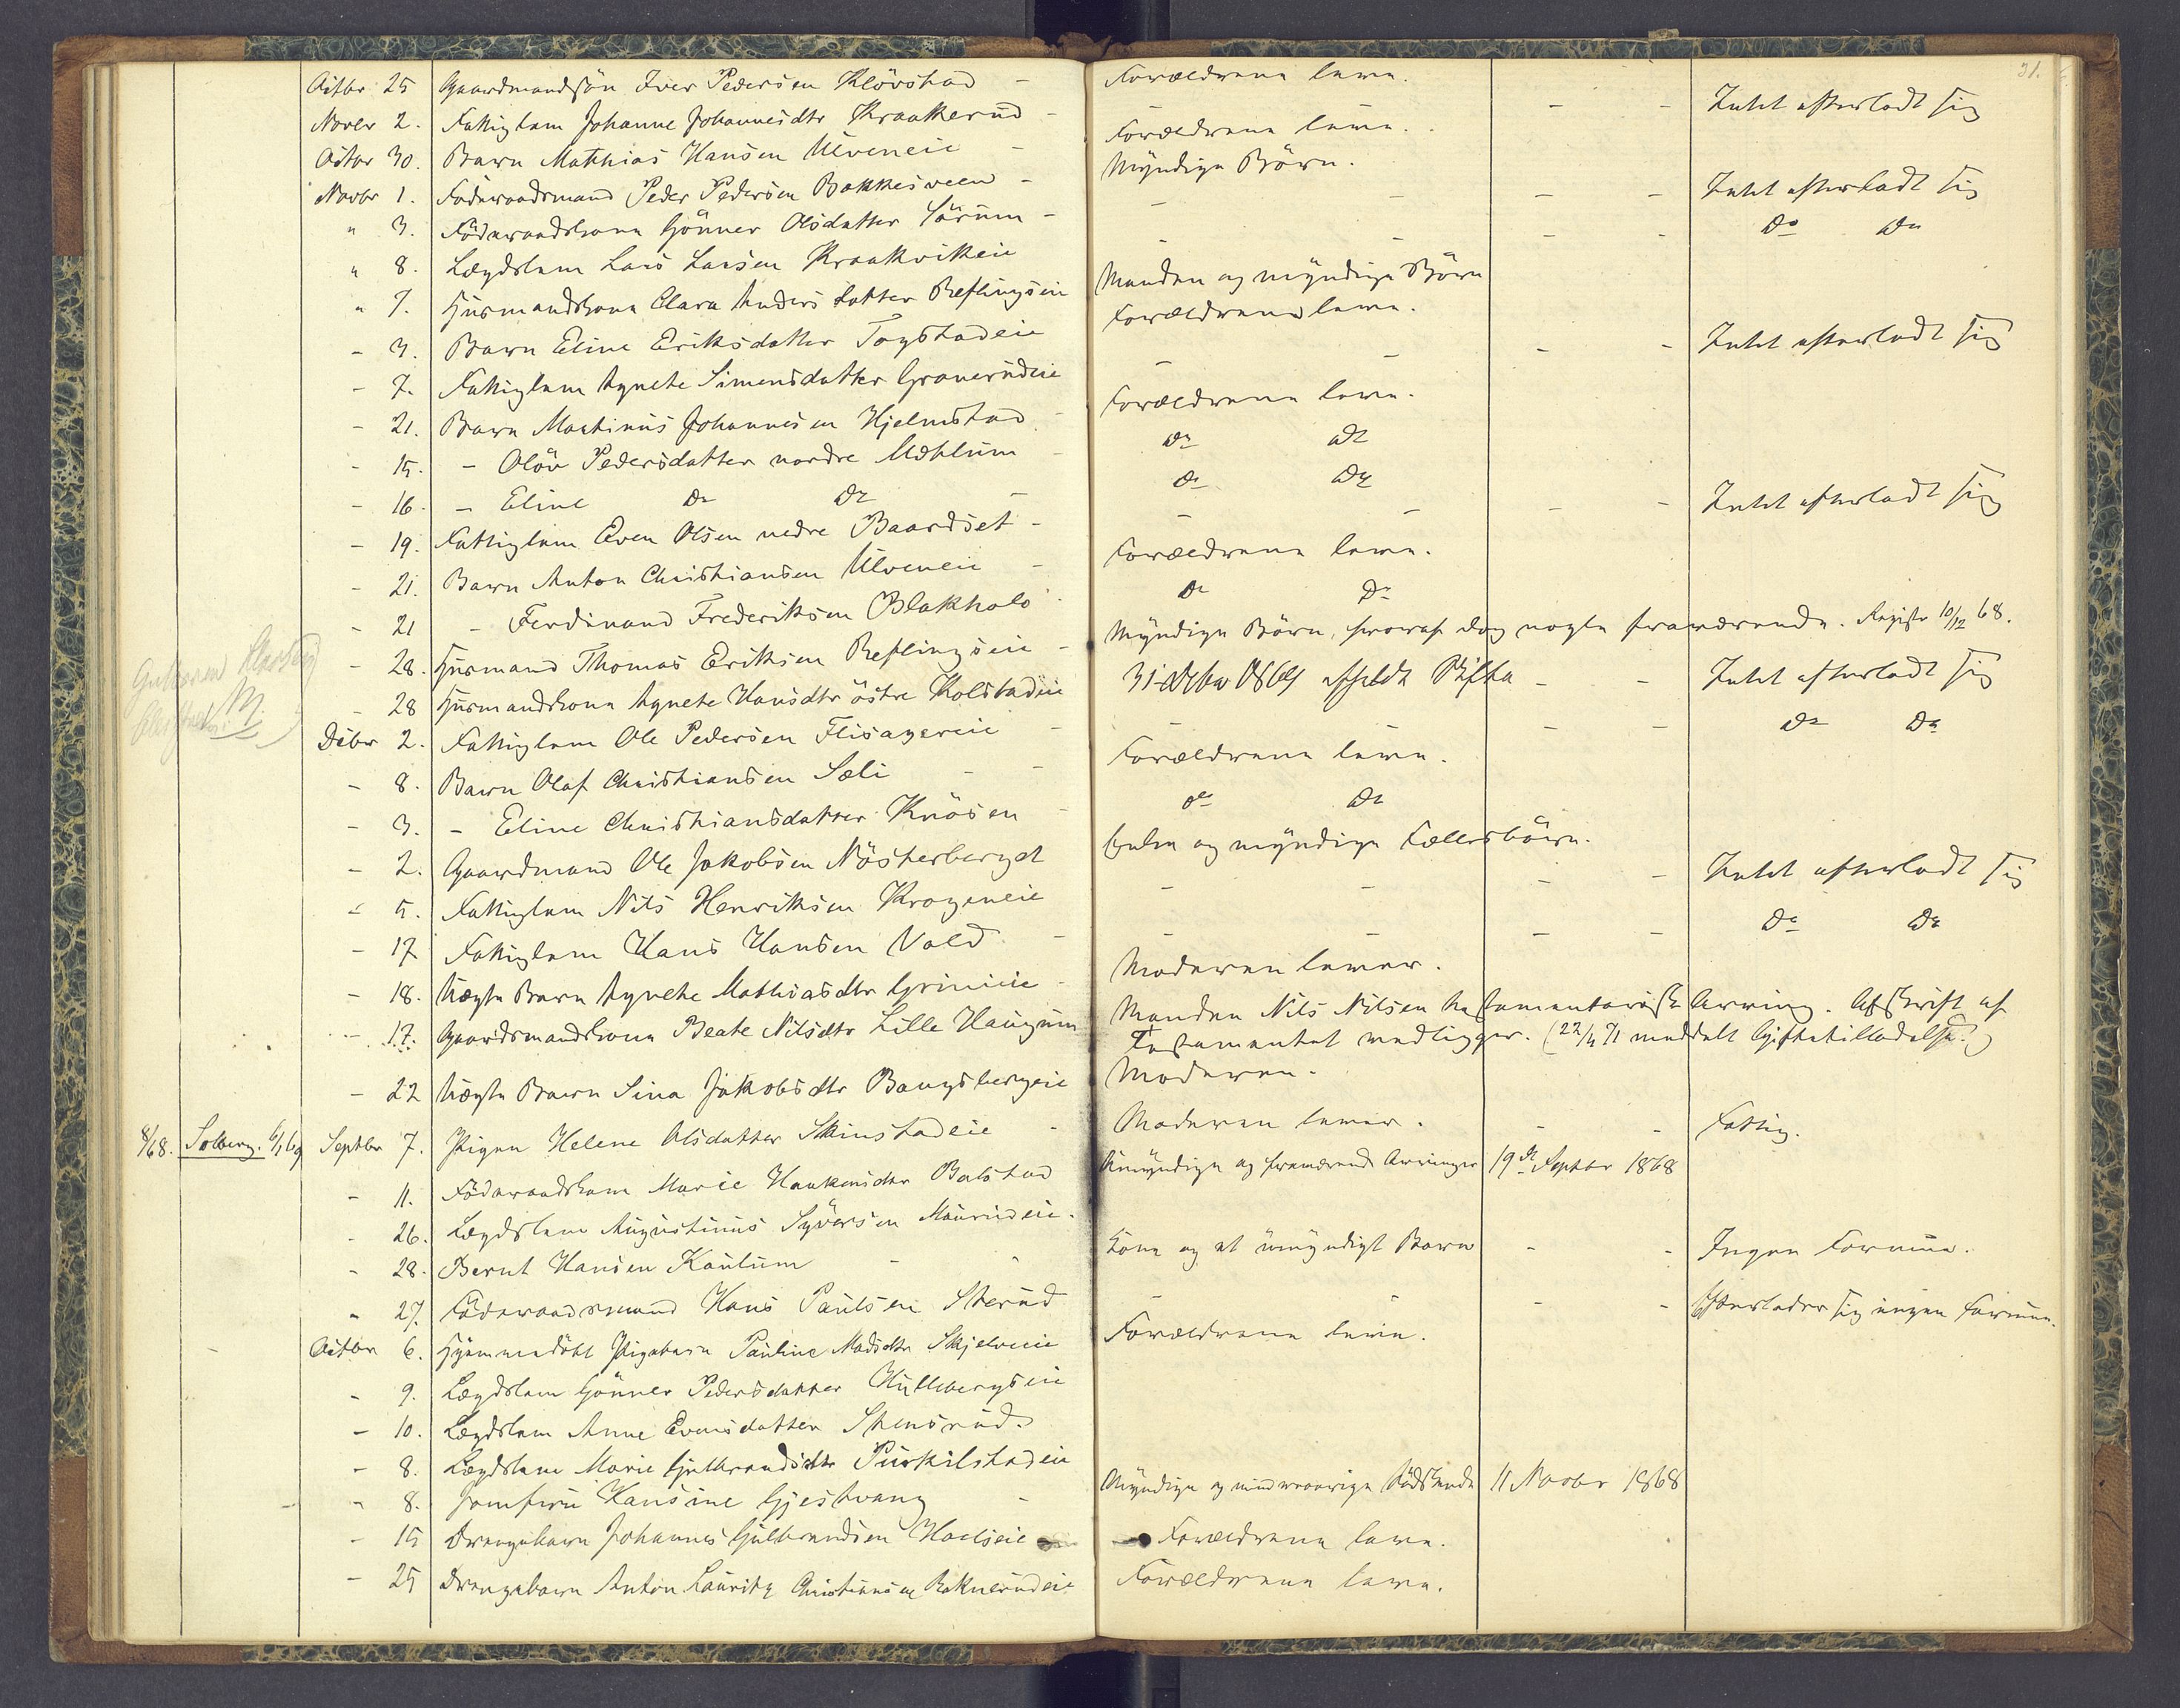 31.
Octbr 25 Gaardmandssön Iver Pedersen Klövstad - Forældrene leve.
Novbr 2. Fattiglem Johanne Johannesdtr Kraakerud - - - - Intet efterladt sig
Octbr 30. Barn Mathias Hansen Ulveneie - Forældrene leve.
Novbr 1. Föderaadsmand Peder Pedersen Bakkesveen - Myndige Börn.
" 3. Föderaadskone Gönner Olsdatter Sörum - - - - - Intet efterladt sig
" 8. Lægdslem Lars Larsen Kraakvikeie - - - - do do
" 7. Husmandskone Clara Andersdatter Reflingseie Manden og myndige Börn
- 3. Barn Eline Eriksdatter Togstadeie Forældrene leve.
- 7. Fattiglem Agnete Simensdatter Granerudeie - - - - Intet efterladt sig
- 21. Barn Martinus Johannesen Hjelmstad - Forældrene leve.
- 15. - Olöv Pedersdatter nordre Mæhlum - do do
- 16. - Eline do do - do do
- 19. Fattiglem Even Olsen nedre Baardset - - - - - Intet efterladt sig
- 21. Barn Anton Christiansen Ulveneie - Forældrene leve.
- 21 - Ferdinand Frederiksen Blakhals - do do
- 28. Husmand Thomas Eriksen Reflingseie - Myndige Börn, hvoraf dog nogle fraværende. Registr 10/12 68.
- 28 Husmandskone Agnete Hansdtr östre Kolstadeie 31 Debr 1869 Skifte - - Intet efterladt sig
Debr 2. Fattiglem Ole Pedersen Flisagereie - - - - do do
- 8. Barn Olaf Christiansen Sæli - - Forældrene leve.
- 3. - Eline Christiansdatter Knösen - do do
- 2. Gaardmand Ole Jakobsen Nösterberget Enke og myndige Fællesbörn.
- 5. Fattiglem Nils Henriksen Krogeneie - - - - Intet efterladt sig
- 17 Fattiglem Hans Hansen Vold - - - - - do do
- 18. Uægte Barn Agnethe Mathiasdtr Grimeie - Moderen lever.
- 17. Gaardmandskone Beate Nilsdtr Lille Haugum Manden Nils Nilsen testamentarisk Arving. Afskrift af
Testamentet vedligger. (22/4 71 meddelt Giftetilladelse)
- 22 Uægte Barn Sina Jakobsdtr Bangsbergeie Moderen.
8/68. Solberg. 6/1 69 Septbr 7. Pigen Helene Olsdatter Skinstadeie - Moderen lever. - - Fattig.
- 11. Föderaadskone Marie Haakensdtr Balstad Umyndige og fraværende Arvinger 19de Septbr 1868
- 26. Lægdslem Augustinus Syversen Maurudeie.
- 28. Bernt Hansen Kaulum - - Kone og et umyndigt Barn - - Ingen Formue.
- 27. Föderaadsmand Hans Paulsen Sterud - - - - Efterlader sig ingen Formue.
Octbr 6. Hjemmedöbt Pigebarn Pauline Madsdtr Skjelveeie Forældrene leve.
- 9. Lægdslem Gönner Pedersdatter Hullebergseie
- 10. Lægdslem Anne Evensdatter Stensrud.
- 8. Lægdslem Marie Gulbrandsdtr Purkilstadeie
- 8. Jomfru Hansine Gjestvang - Myndige og mindreaarige Södskende 11 Novbr 1868
- 15 Drengebarn Johannes Gulbrandsen Hoelseie - Forældrene leve.
- 25 Drengebarn Anton Lauritz Christiansen Roknerudeie Forældrene leve.